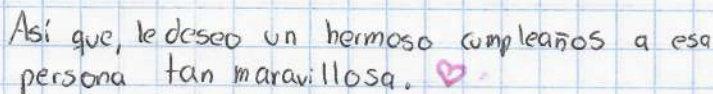 Así que, le deseo un hermoso cumpleaños a esa
persona tan maravillosa. ♡